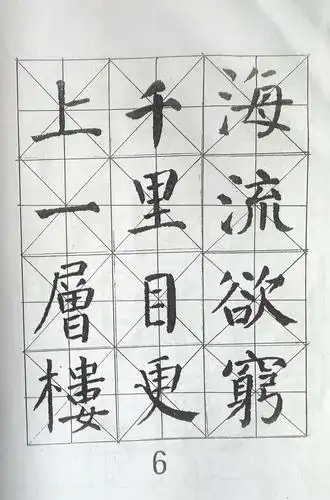 海流欲窮
千里目更
上一層樓
6